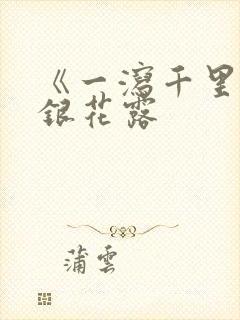 《一瀉千里
銀花露
蒲雲